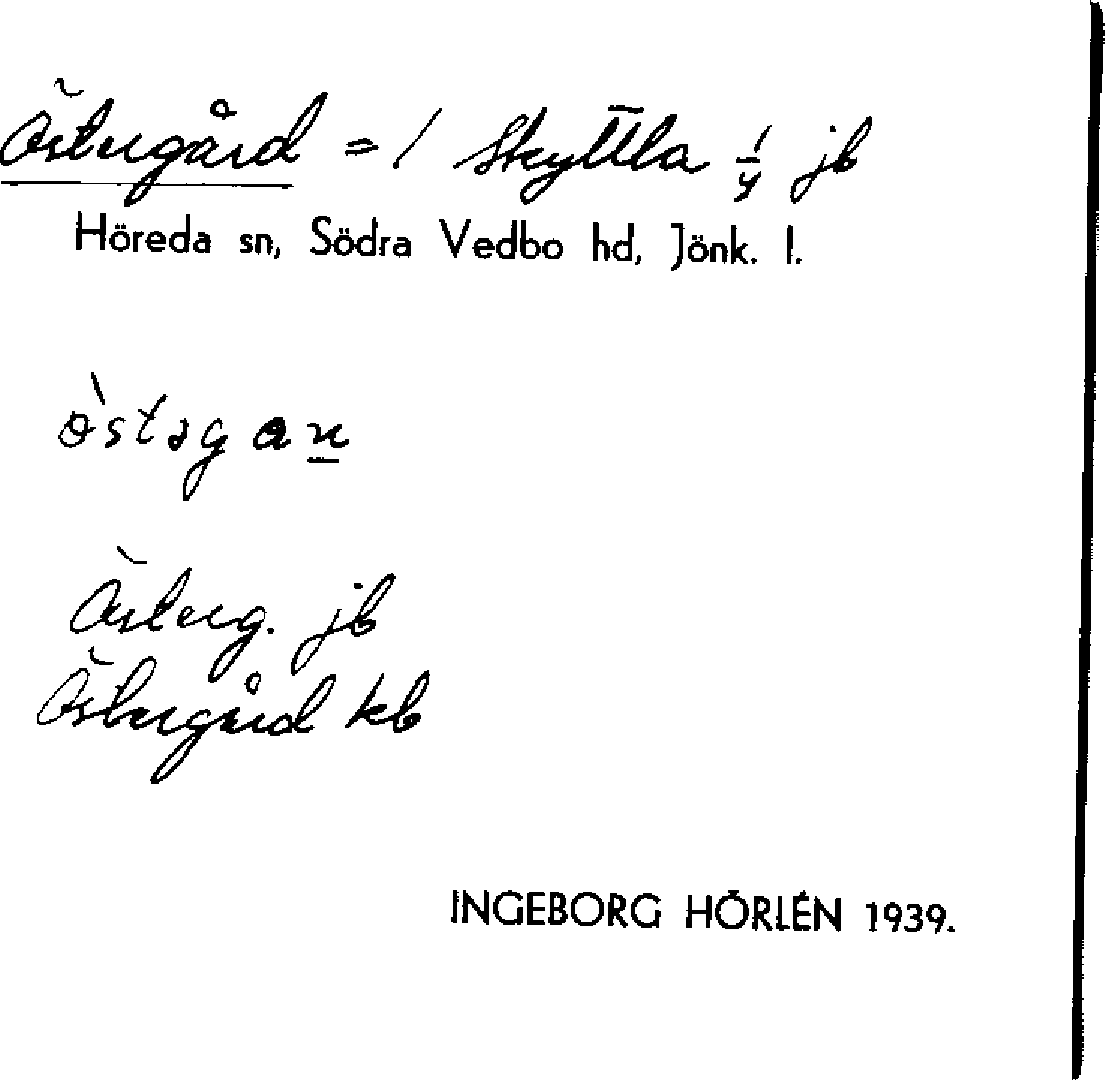 Östergård = 1 Skyttla 1/4 jb
Höreda sn, Södra Vedbo hd, Jönk. l.
Österg. jb
Östergård kb
INGEBORG HÖRLÉN 1939.